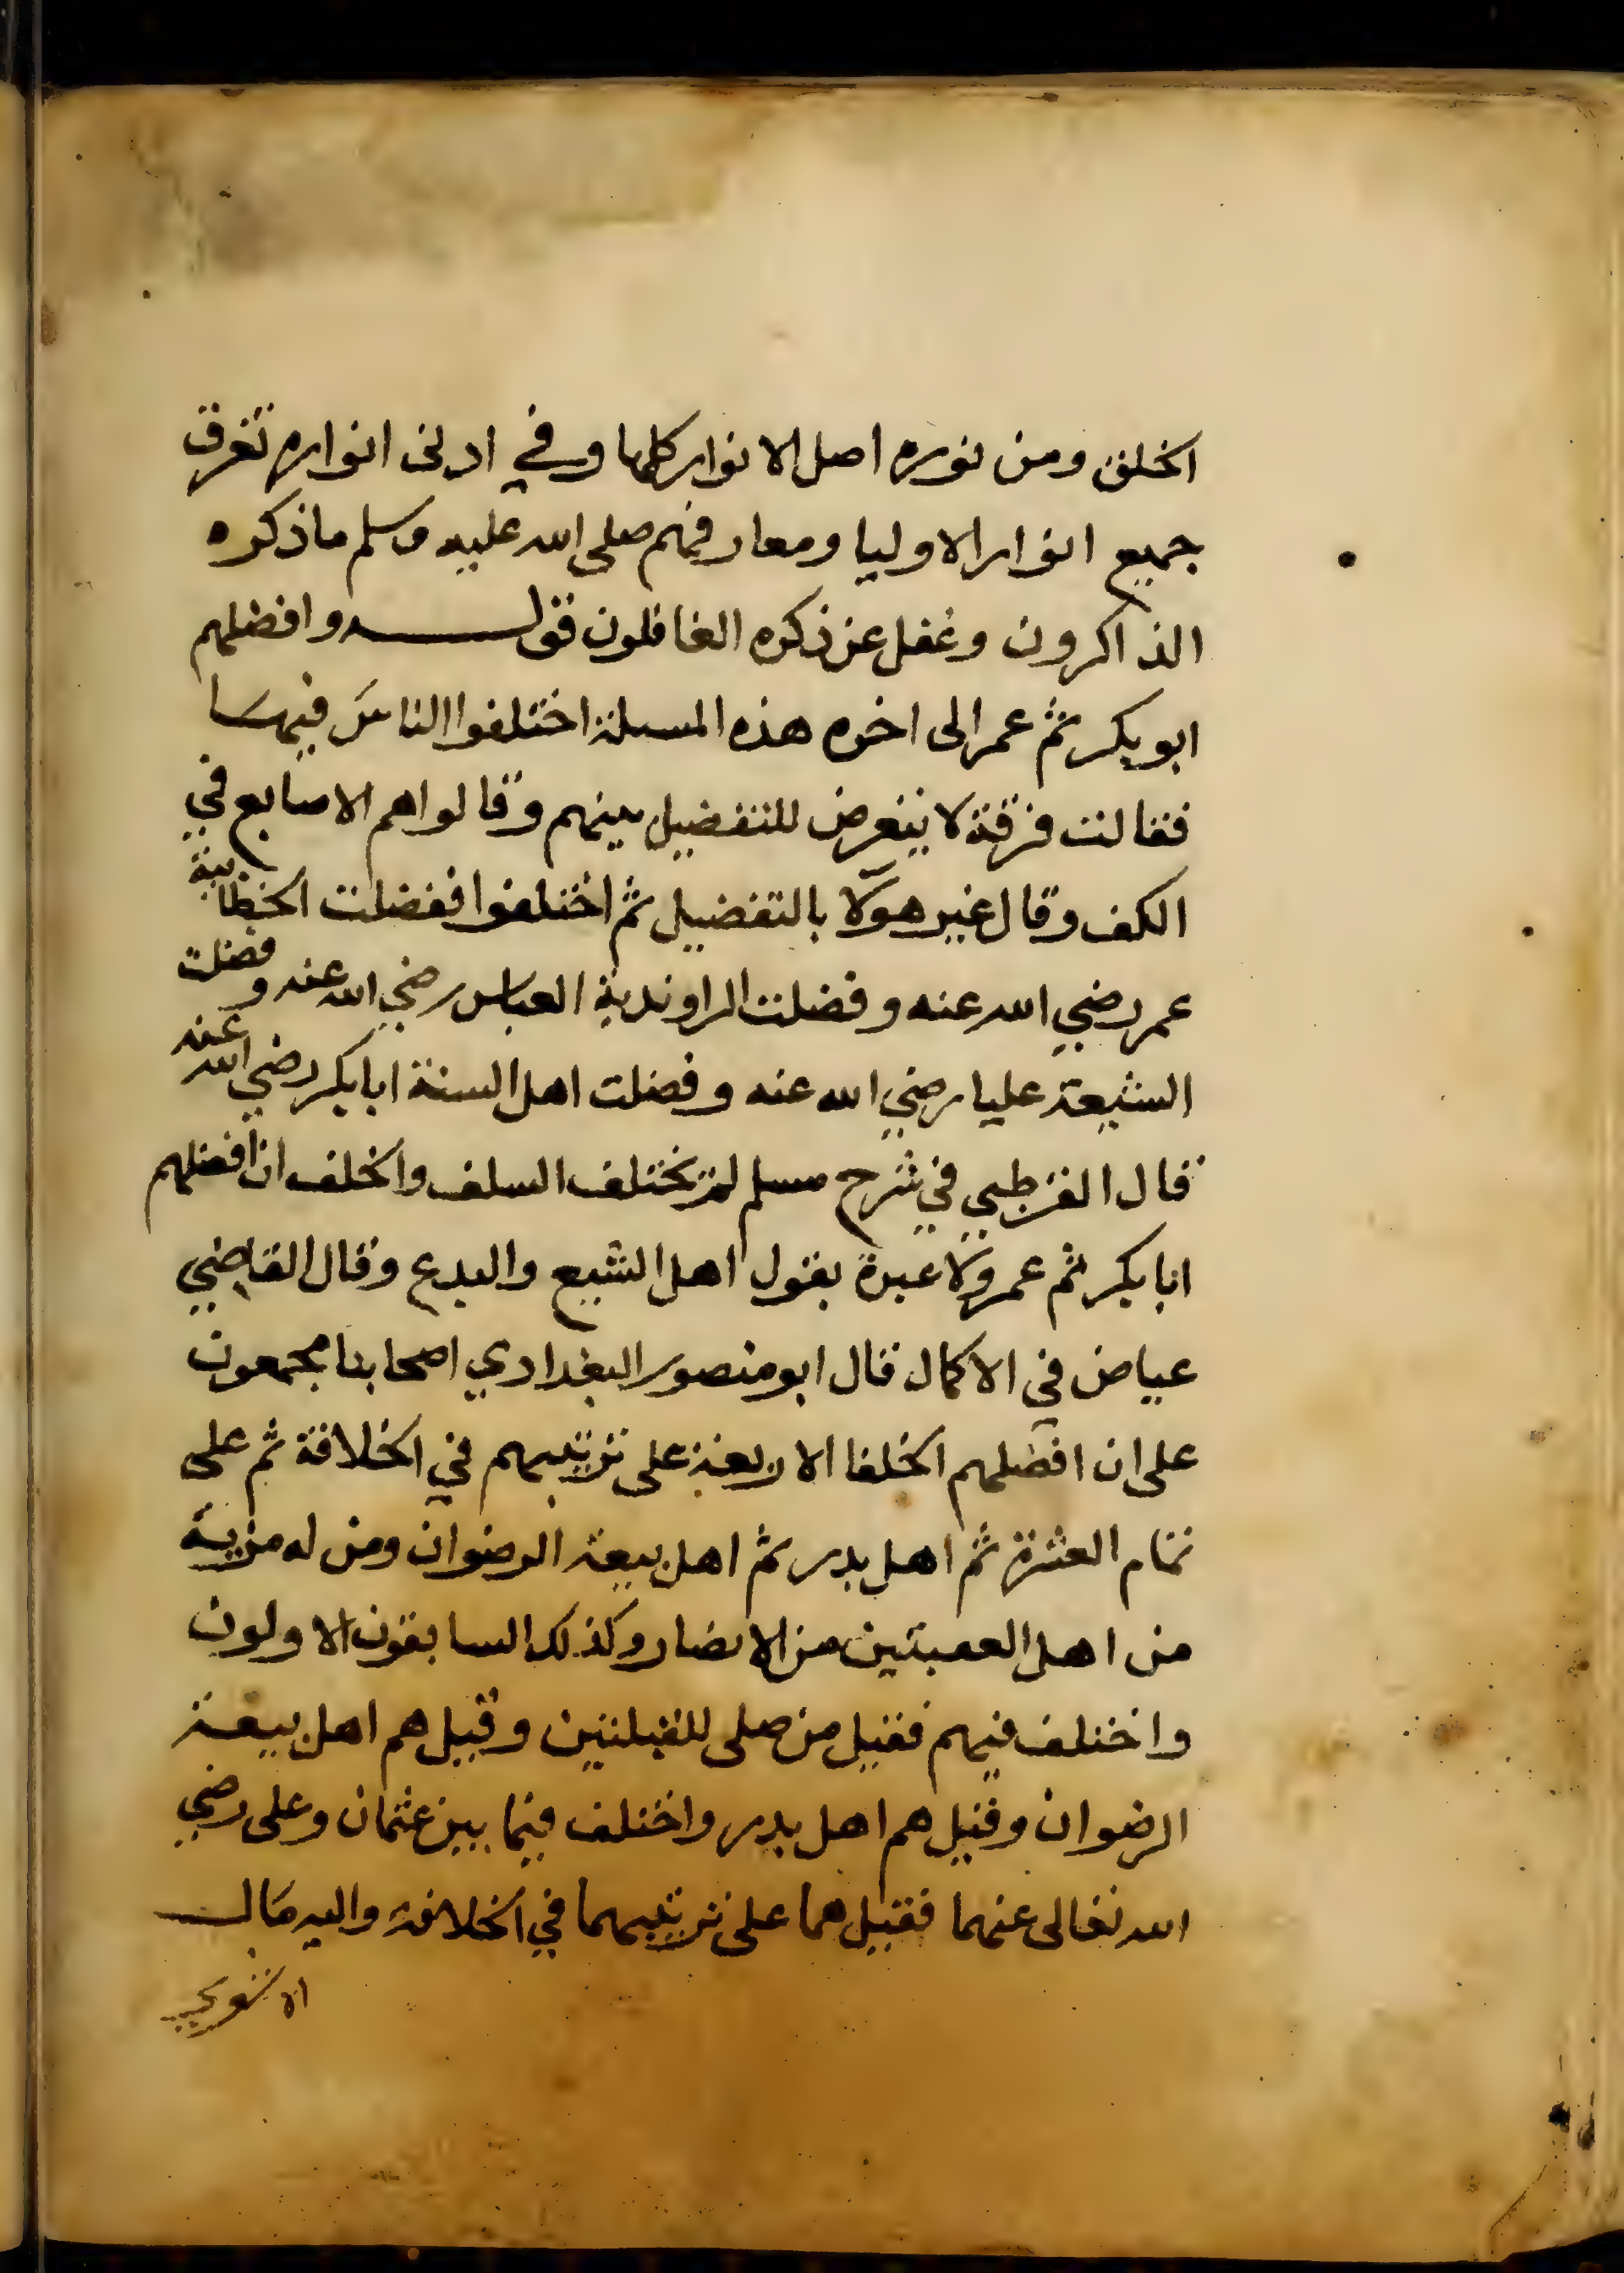 الخلق ومن نوره اصل الانوار كلها وفي ادنى انواره تغرق
جميع انوار الاوليا ومعارفهم صلى الله عليه وسلم ما ذكره
الذاكرون وغفل عن ذكره الغافلون قولــه وافضلهم
ابو بكر ثم عمر الى اخره هذه المسئلة اختلفوا الناس فيها
فقالت فرقة لا يتعرض للتفضيل بينهم وقالوا هم الاصابع في
الكف وقال غير هولا بالتفضيل ثم اختلفوا ففضلت الخطابية
عمر رضي الله عنه وفضلت الراوندية العباس رضي الله عنه وفضلت
الشيعة عليا رضي الله عنه وفضلت اهل السنة ابا بكر رضي الله عنه
قال القرطبي في شرح مسلم لم يختلف السلف والخلف ان افضلهم
ابا بكر ثم عمر ولا عبرة بقول اهل الشيع والبدع وقال القاضي
عياض في الاكمال قال ابو منصور البغدادي اصحابنا مجمعون
على ان افضلهم الخلفا الاربعة على ترتيبهم في الخلافة ثم على
تمام العشرة ثم اهل بدر ثم اهل بيعة الرضوان ومن له مزية
من اهل العقبتين من الانصار وكذلك السابقون الاولون
واختلف فيهم فقيل من صلى للقبلتين وقيل هم اهل بيعة
الرضوان وقيل هم اهل بدر واختلف فيما بين عثمان وعلى رضي
الله تعالى عنهما فقيل هما على ترتيبهما في الخلافة واليه مال
الاشعري